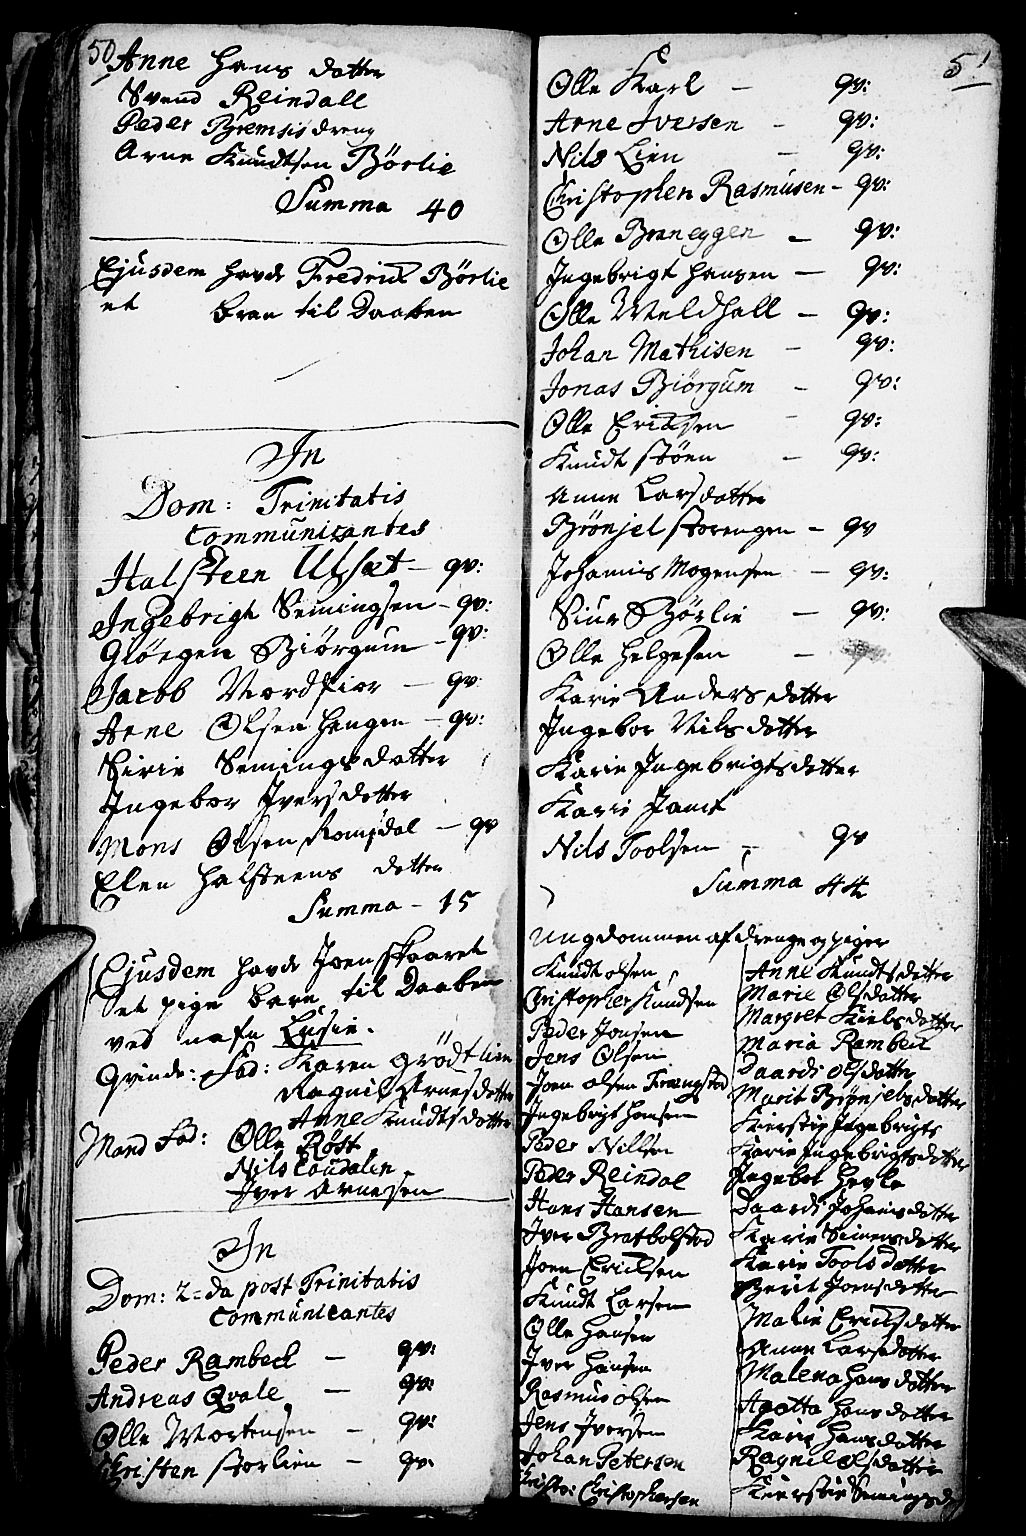 50
Anne Hans datter
Svend Reindall
Peder Bremsis dreng
Arne Knudtsen Börlie
Summa 40
Ejusdem havde Fredrich Börlie
et barn til Daaben
In
Dom: Trinitatis
Communicantes
Halsteen Ulset - qv:
Ingebrigt Semingsen - qv:
Glöegen Biörgum - qv:
Jacob Nordfior - qv:
Arne Olsen Haugen - qv:
Sirie Semings datter
Ingebor Ivers datter
Mons Olsen Romsdal - qv
Elen Halsteens datter
Summa - 15
Ejusdem havde Joen Skaaret
et pige barn til Daaben
ved nafn Lusie.
Qvinde: Fad: Karen Grödtlien
Ragnil Arnes datter
Anne Knudts datter
Mand Fad: Olle Röst
Nils Eoudalen
Iver Arnesen
In
Dom: 2=da post Trinitatis
Communicantes
Peder Rambech - qv:
Andreas Qvale - qv:
Olle Mortensen - qv:
Christen Storlien - qv.
51
Olle Karl - qv:
Arne Iversen - qv:
Nils Lien - qv:
Christophen Rasmusen - qv:
Olle Braneggen - qv:
Ingebrigt Hansen - qv:
Olle Meldhall - qv:
Johan Mathisen - qv:
Jonas Biörgum - qv:
Olle Erichsen - qv:
Knudt Stöen - qv:
Anne Lars datter
Brönjel Storengen - qv
Johannis Mogensen - qv:
Siur Börlie - qv:
Olle Helgesen -
Karie Anders datter
Ingebor Nils datter
Karie Ingebrigts datter
Karie Jamt
Nils Toolsen - qv
Summa 44
Ungdommen af drenge og piger
Knudt Olsen
Christopher Knudsen
Peder Jonsen
Jens Olsen
Joen Olsen Tronsgstad
Ingebrigt Hansen
Peder Nillsen
Peder Reindal
Hans Hansen
Iver Bratbolstad
Joen Erichsen
Knudt Larsen
Olle Hansen
Iver Hansen
Rasmus Olsen
Jens Iversen
Johan Petersen
Christo: Christophersen
Anne Knudts datter
Marie Ols datter
Margret Niels datter
Maria Rambech
Daardi Ols datter
Marit Brönjels datter
Kierstie Ingebrigts
Karie Ingebrigts datter
Ingebor Herle
Daardi Johanis datter
Karie Simens datter
Karie Tools datter
Berit Joens datter
Malin Erichs datter
Anne Lars datter
Malena Hans datter
Agatta Hans datter
Karie Hans datter
Ragnil Ols datter
Kierstie Semings d